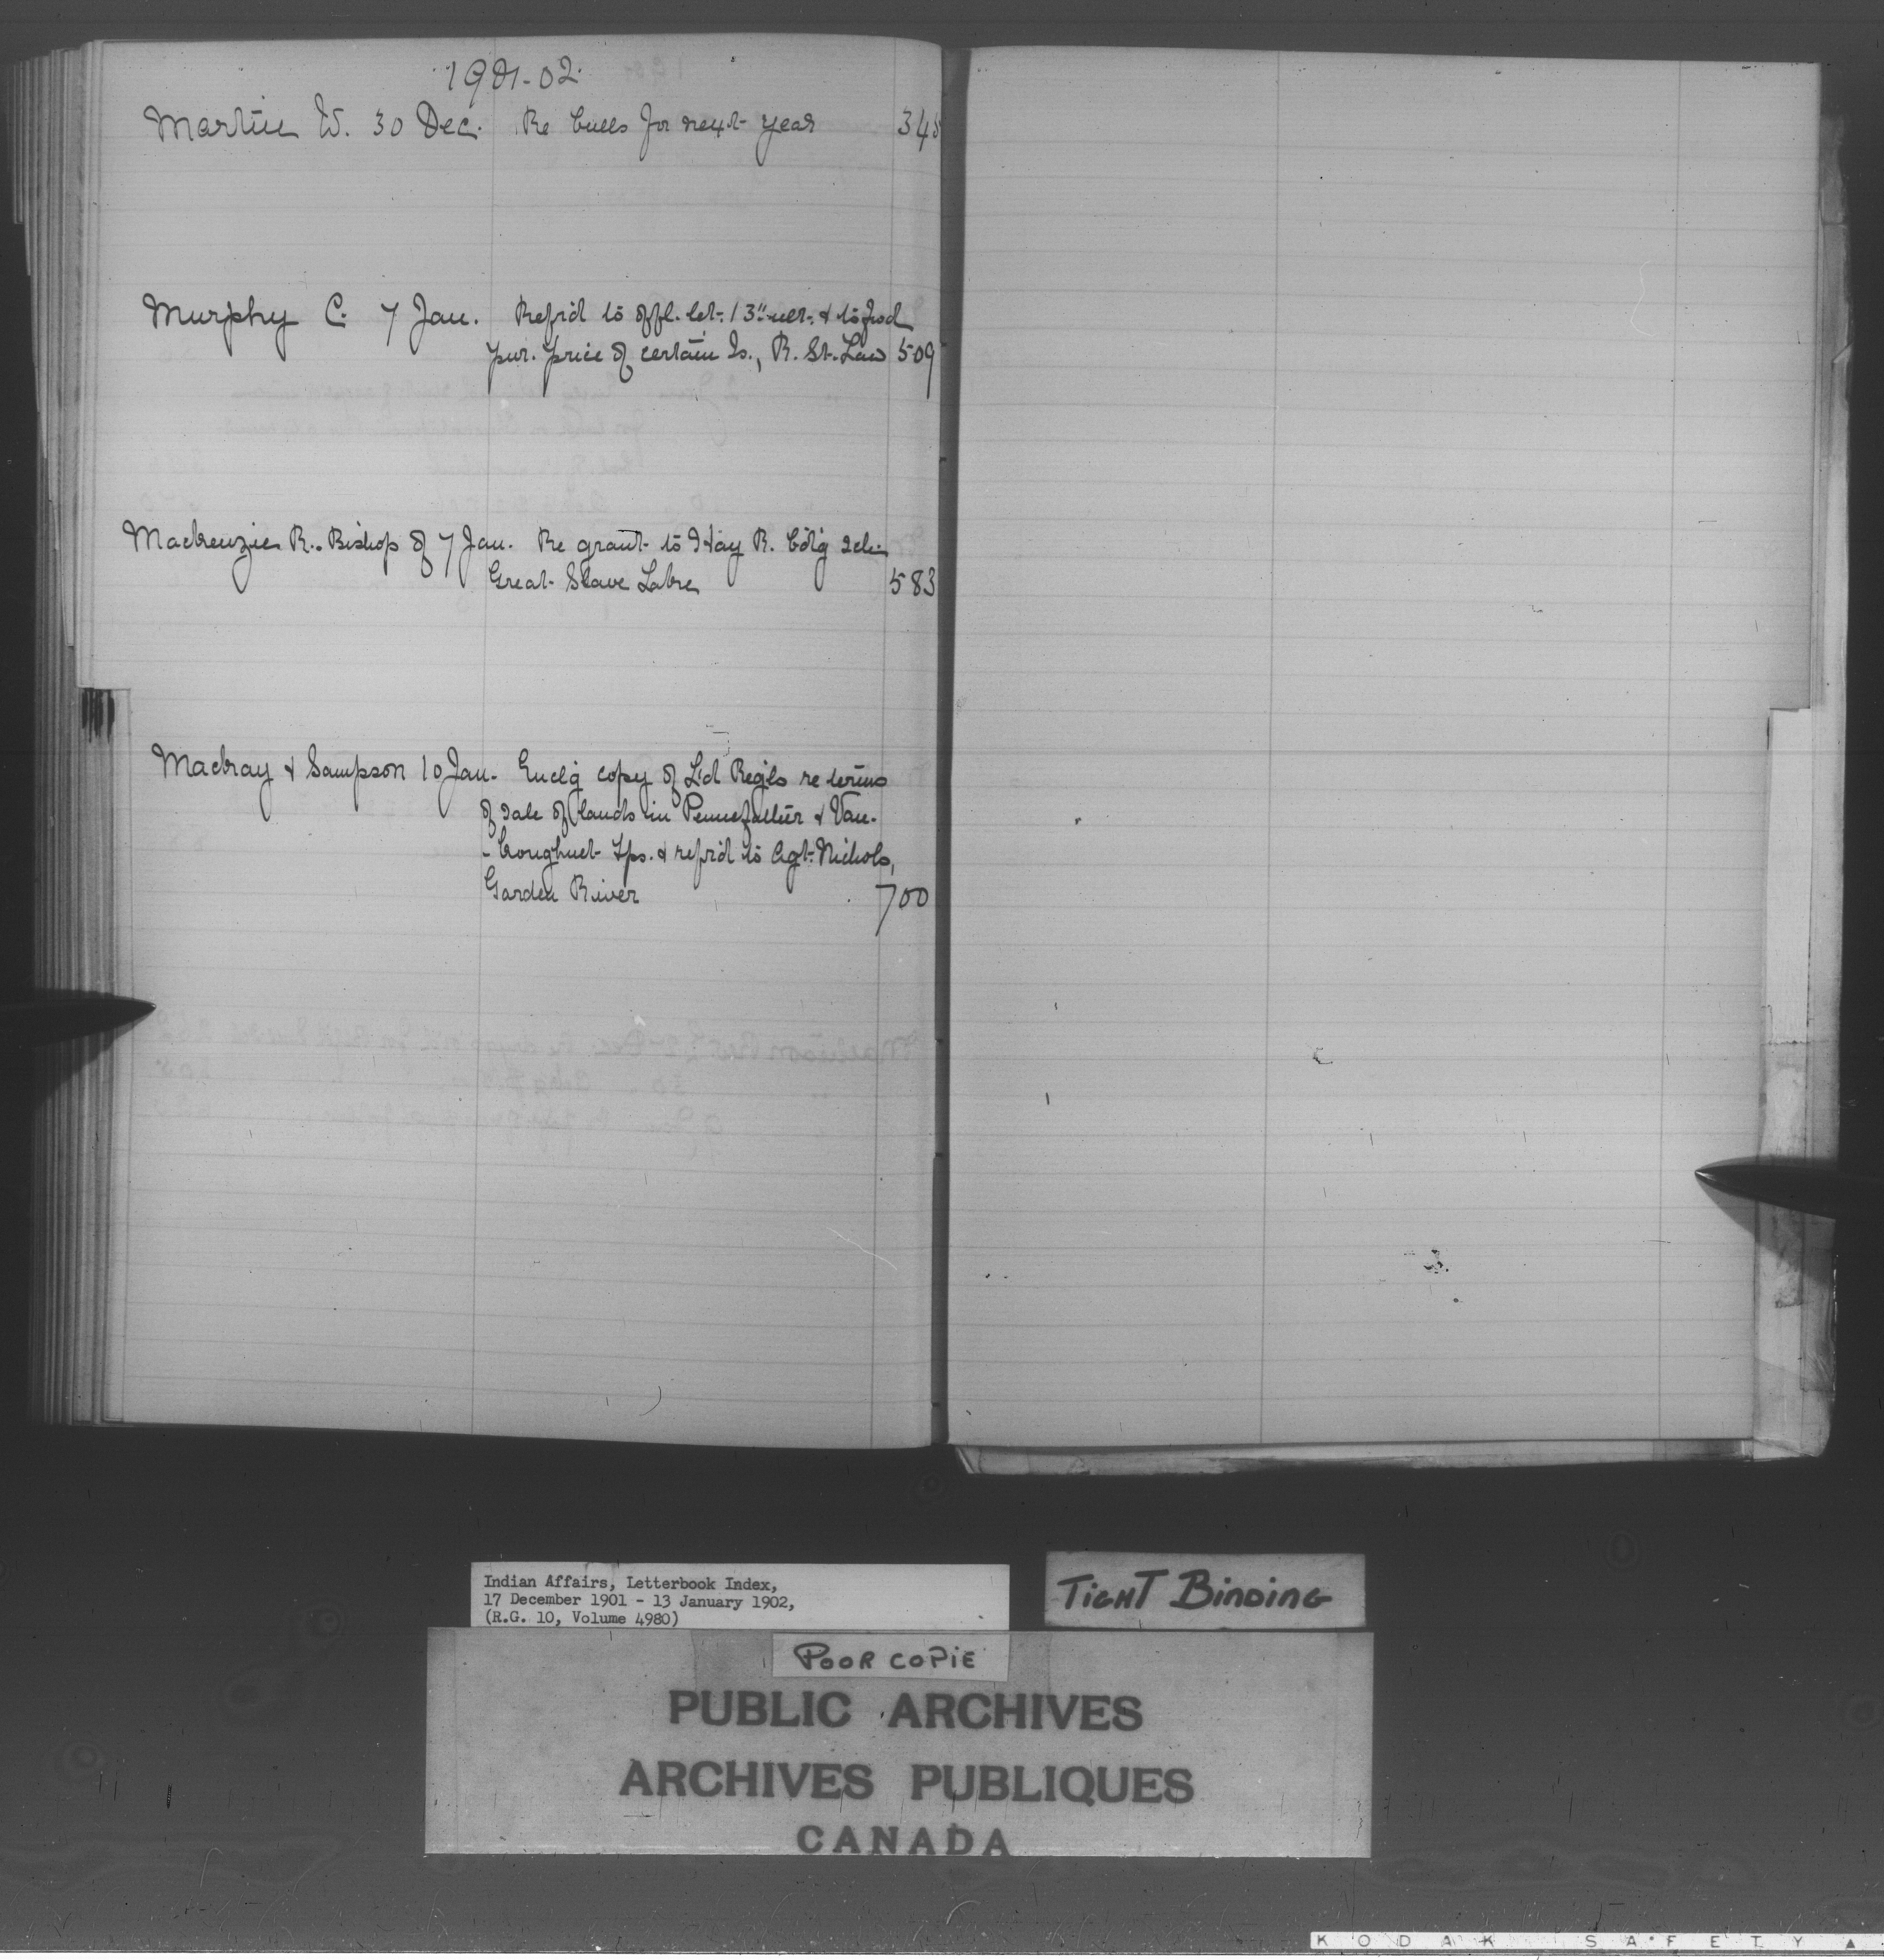 1901-02.
Martin W. 30 Dec. Re bulls for next year 34
Murphy C. 7 Jan. Refrd to offl. let. 13" ult. &
pur. price of certain Is., R. St. Law 509
Mackenzie R. Bishop of 7 Jan. Re grant to Hay R. bd'g sch.
Great Slave Lake 583
Mackay & Sampson 10 Jan. Enclg copy of L'd Reg'ls re terms
of sale of lands in Pennefather & Van-
-koughnet Tps. & refrd to Agt. Nichols,
Garden River 700
Indian Affairs, Letterbook Index,
17 December 1901 - 13 January 1902,
(R.G. 10, Volume 4980)
TIGHT BINDING
POOR COPIE
PUBLIC ARCHIVES
ARCHIVES PUBLIQUES
CANADA
KODAK SAFETY